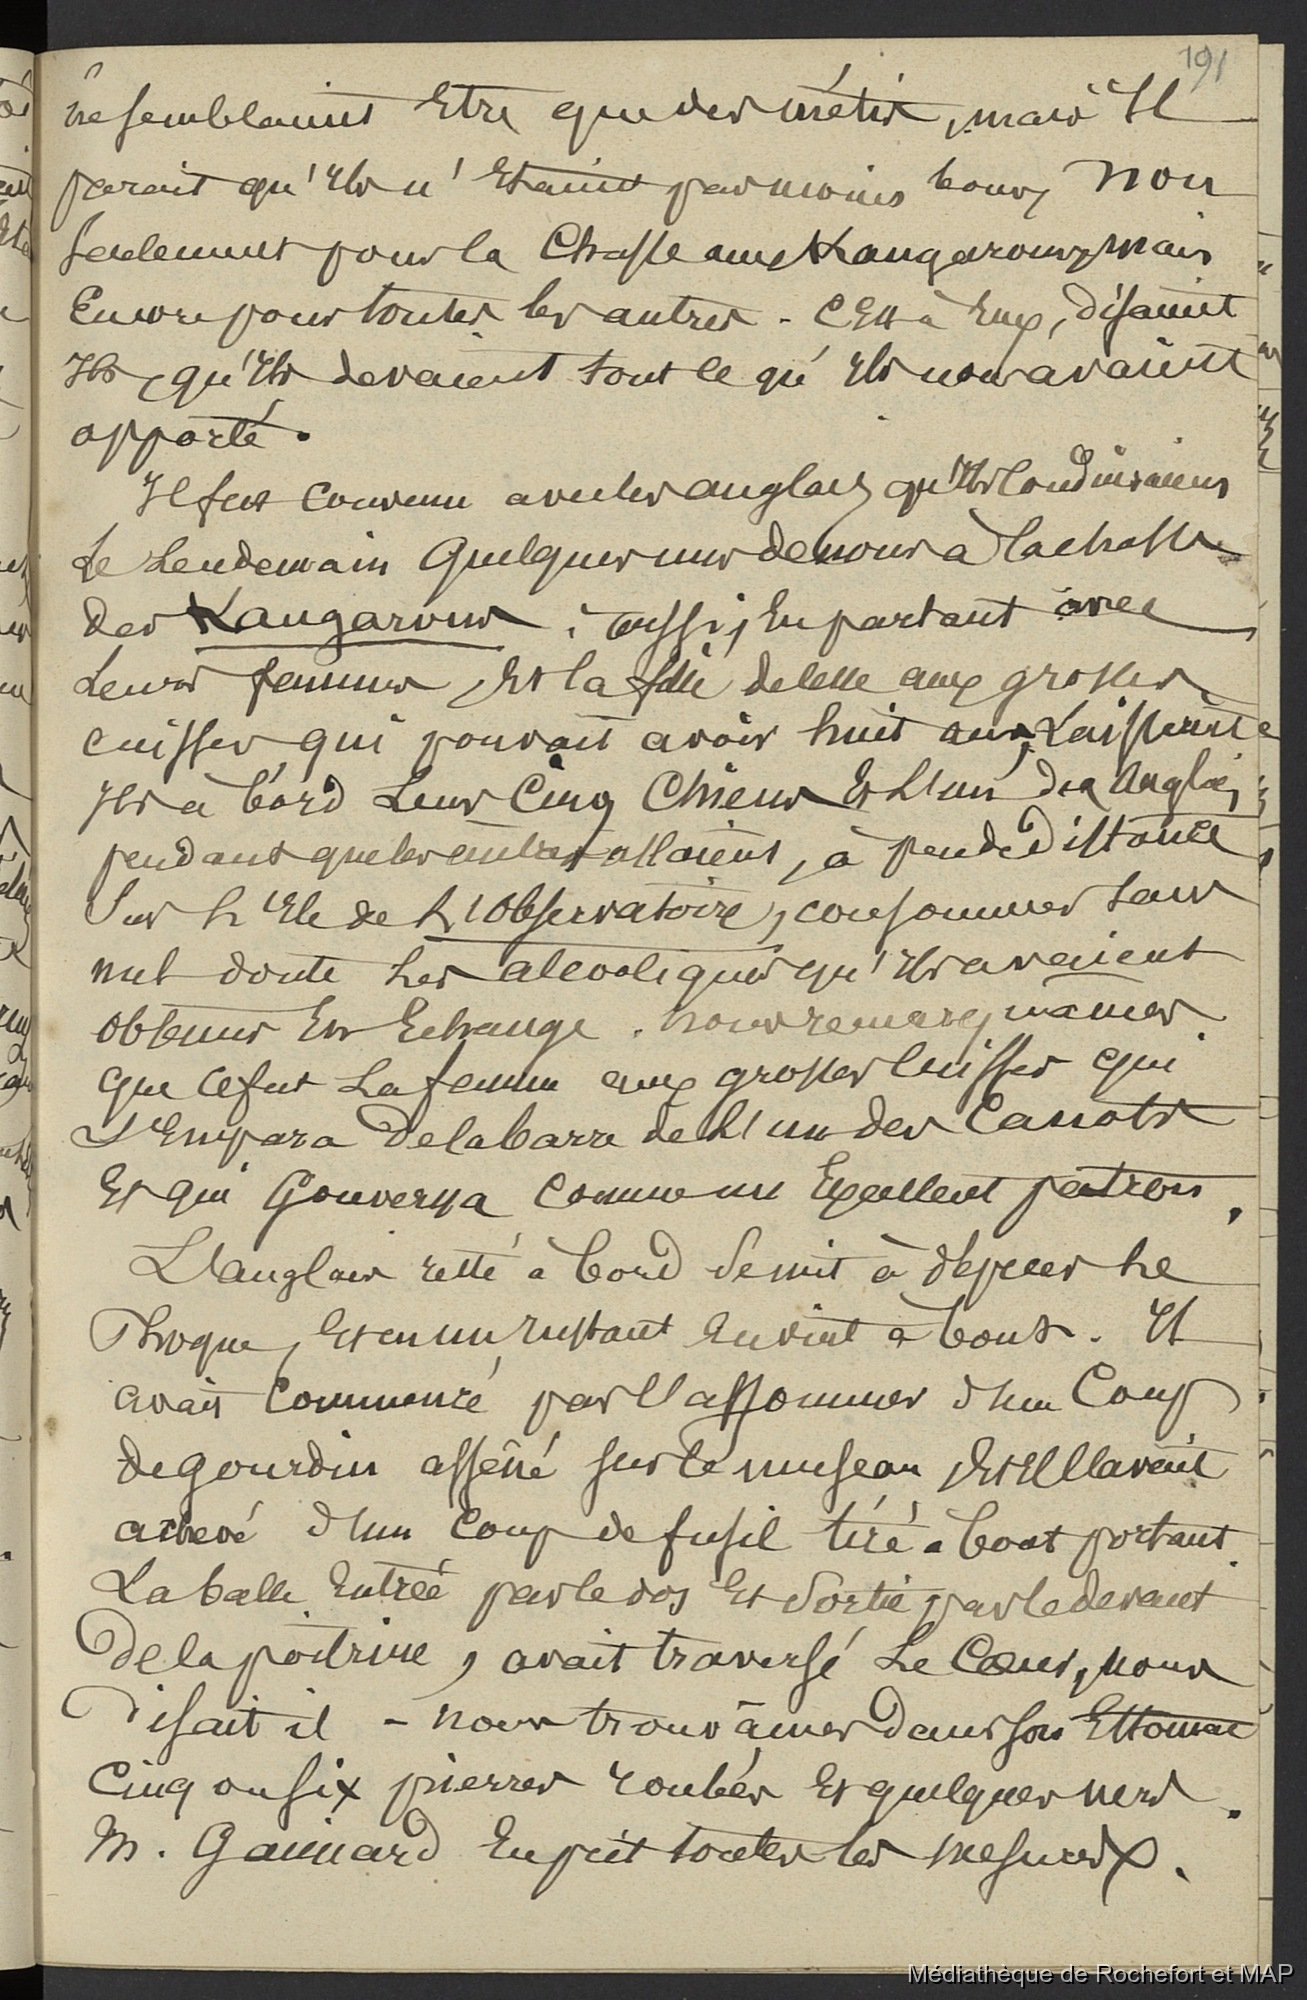 191
ne semblaient Etre que des métis, mais Il
parait qu'Ils n'Etaient pas moins bons, non
seulement pour la Chasse aux Kangarous, mais
Encore pour toutes les autres - C'Est à Eux, disaient
Ils, qu'Ils devaient tout ce qu'Ils nous avaient
apporté.
Il fut convenu avec les anglais qu'Ils Conduiraient
Le Lendemain Quelques uns de nous à la chasse
des Kangarous. aussi, En partant avec
Leurs femmes, Et la fille de celle aux grosses
cuisses qui pouvait avoir huit ans, Laissèrent
Ils à bord Leurs Cinq Chiens Et L'un des Anglais
pendant que les autres allaient, à peu de Distance
Sur L'Ile de L'Observatoire, consommer sans
nul doute Les alcooliques qu'Ils avaient
obtenus En Echange. nous remarquâmes
que ce fut La femme aux grosses Cuisses qui
S'Empara de la barre de L'un des Canots
Et qui Gouverna Comme un Excellent patron.
L'anglais resté à bord Se mit à dépecer Le
Phoque, Et en un Instant En vint à bout. Il
avait Commencé par l'assommer d'un Coup
de gourdin asséné sur le museau, Et Il l'avait
achevé d'un Coup de fusil tiré à bout portant.
La balle Entrée par le dos Et Sortie par le devant
De la poitrine, avait traversé Le Coeur, nous
Disait il - nous trouvâmes dans son Estomac
Cinq ou six pierres roulées Et quelques vers.
M. Gaimard En prit toutes les mesures.
Médiathèque de Rochefort et MAP